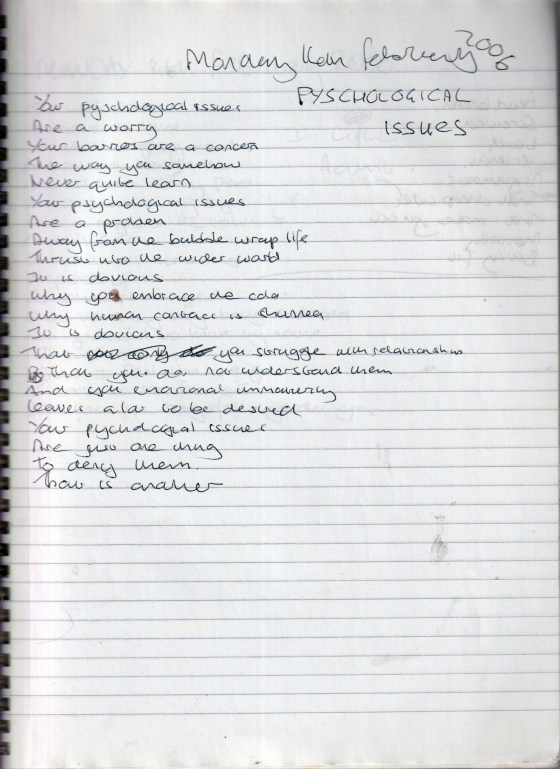 Monday February 2006
PYSCHOLOGICAL
ISSUES
Your pyschological issues
Are a worry
Your barriers are a concern
The way you somehow
Never quite learn
Your psychological issues
Are a problem
Away from the bubble wrap life
Thrust into the wider world
It is obvious
Why you embrace the cold
Why human contact is shunned
It is obvious
That you struggle with relationships
That you do not understand them
And your emotional
Leaves a lot to be desired
Your pychological issues
Are just one thing
To deny them.
That is another